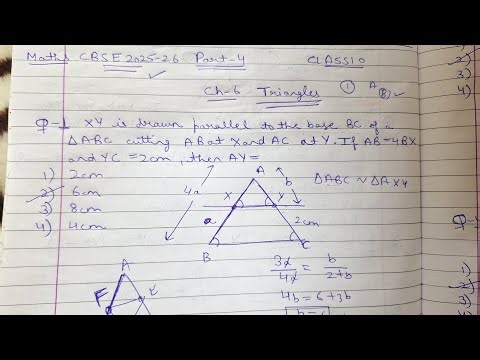 Maths CBSE 2025-26 Part-4 CLASS10
Ch-6 Triangles ① A
Q-1 XY is drawn parallel to the base BC of a
ΔABC cutting AB at X and AC at Y. If AB=4BX
and YC =2cm, then AY=
1) 2cm
2) 6cm
3) 8cm
4) 4cm
A
4a
b
ΔABC ~ ΔAXY
X
Y
a
2cm
B
C
3a/4a = b/(2+b)
4b = 6+3b
A
F
Q-1
2)
3)
4)
1)
2)
3)
4)